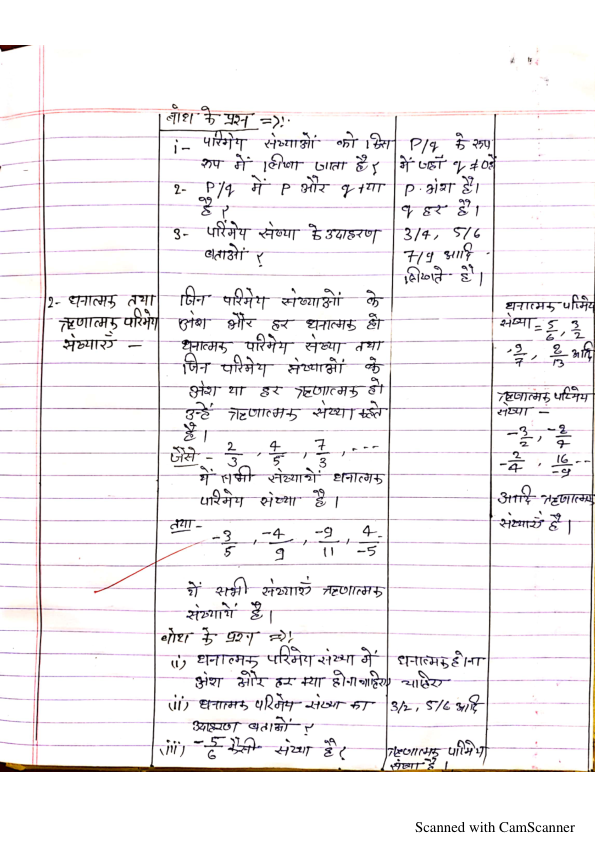 बोध के प्रश्न =>:-
1- परिमेय संख्याओं को किस
रूप में लिखा जाता है?
P/q के रूप
में जहाँ q ≠ 0 है
2- P/q में P और q क्या
है?
P अंश है।
q हर है।
3- परिमेय संख्या के उदाहरण
बताओं?
3/4, 5/6
7/9 आदि
लिखते है।
2- धनात्मक तथा
ऋणात्मक परिमेय
संख्याएँ -
जिन परिमेय संख्याओं के
अंश और हर धनात्मक हो
धनात्मक परिमेय संख्या तथा
जिन परिमेय संख्याओं के
अंश या हर ऋणात्मक हो
उन्हें ऋणात्मक संख्या कहते
है।
जैसे - 2/3, 4/5, 7/3, ---
ये सभी संख्यायें धनात्मक
परिमेय संख्या है।
तथा -
-3/5, -4/9, -9/11, 4/-5
ये सभी संख्याएँ ऋणात्मक
संख्यायें है।
धनात्मक परिमेय
संख्या = 5/6, 3/2
9/7, 2/13 आदि
ऋणात्मक परिमेय
संख्या -
-3/2, -2/7
2/-4, 16/-9 --
आदि ऋणात्मक
संख्याएँ है।
बोध के प्रश्न =>:-
(i) धनात्मक परिमेय संख्या में
अंश और हर क्या होना चाहिए
धनात्मक होना
चाहिए
(ii) धनात्मक परिमेय संख्या का
उदाहरण बताओं?
3/2, 5/6 आदि
(iii) -5/6 कैसी संख्या है?
ऋणात्मक परिमेय
संख्या है।
Scanned with CamScanner